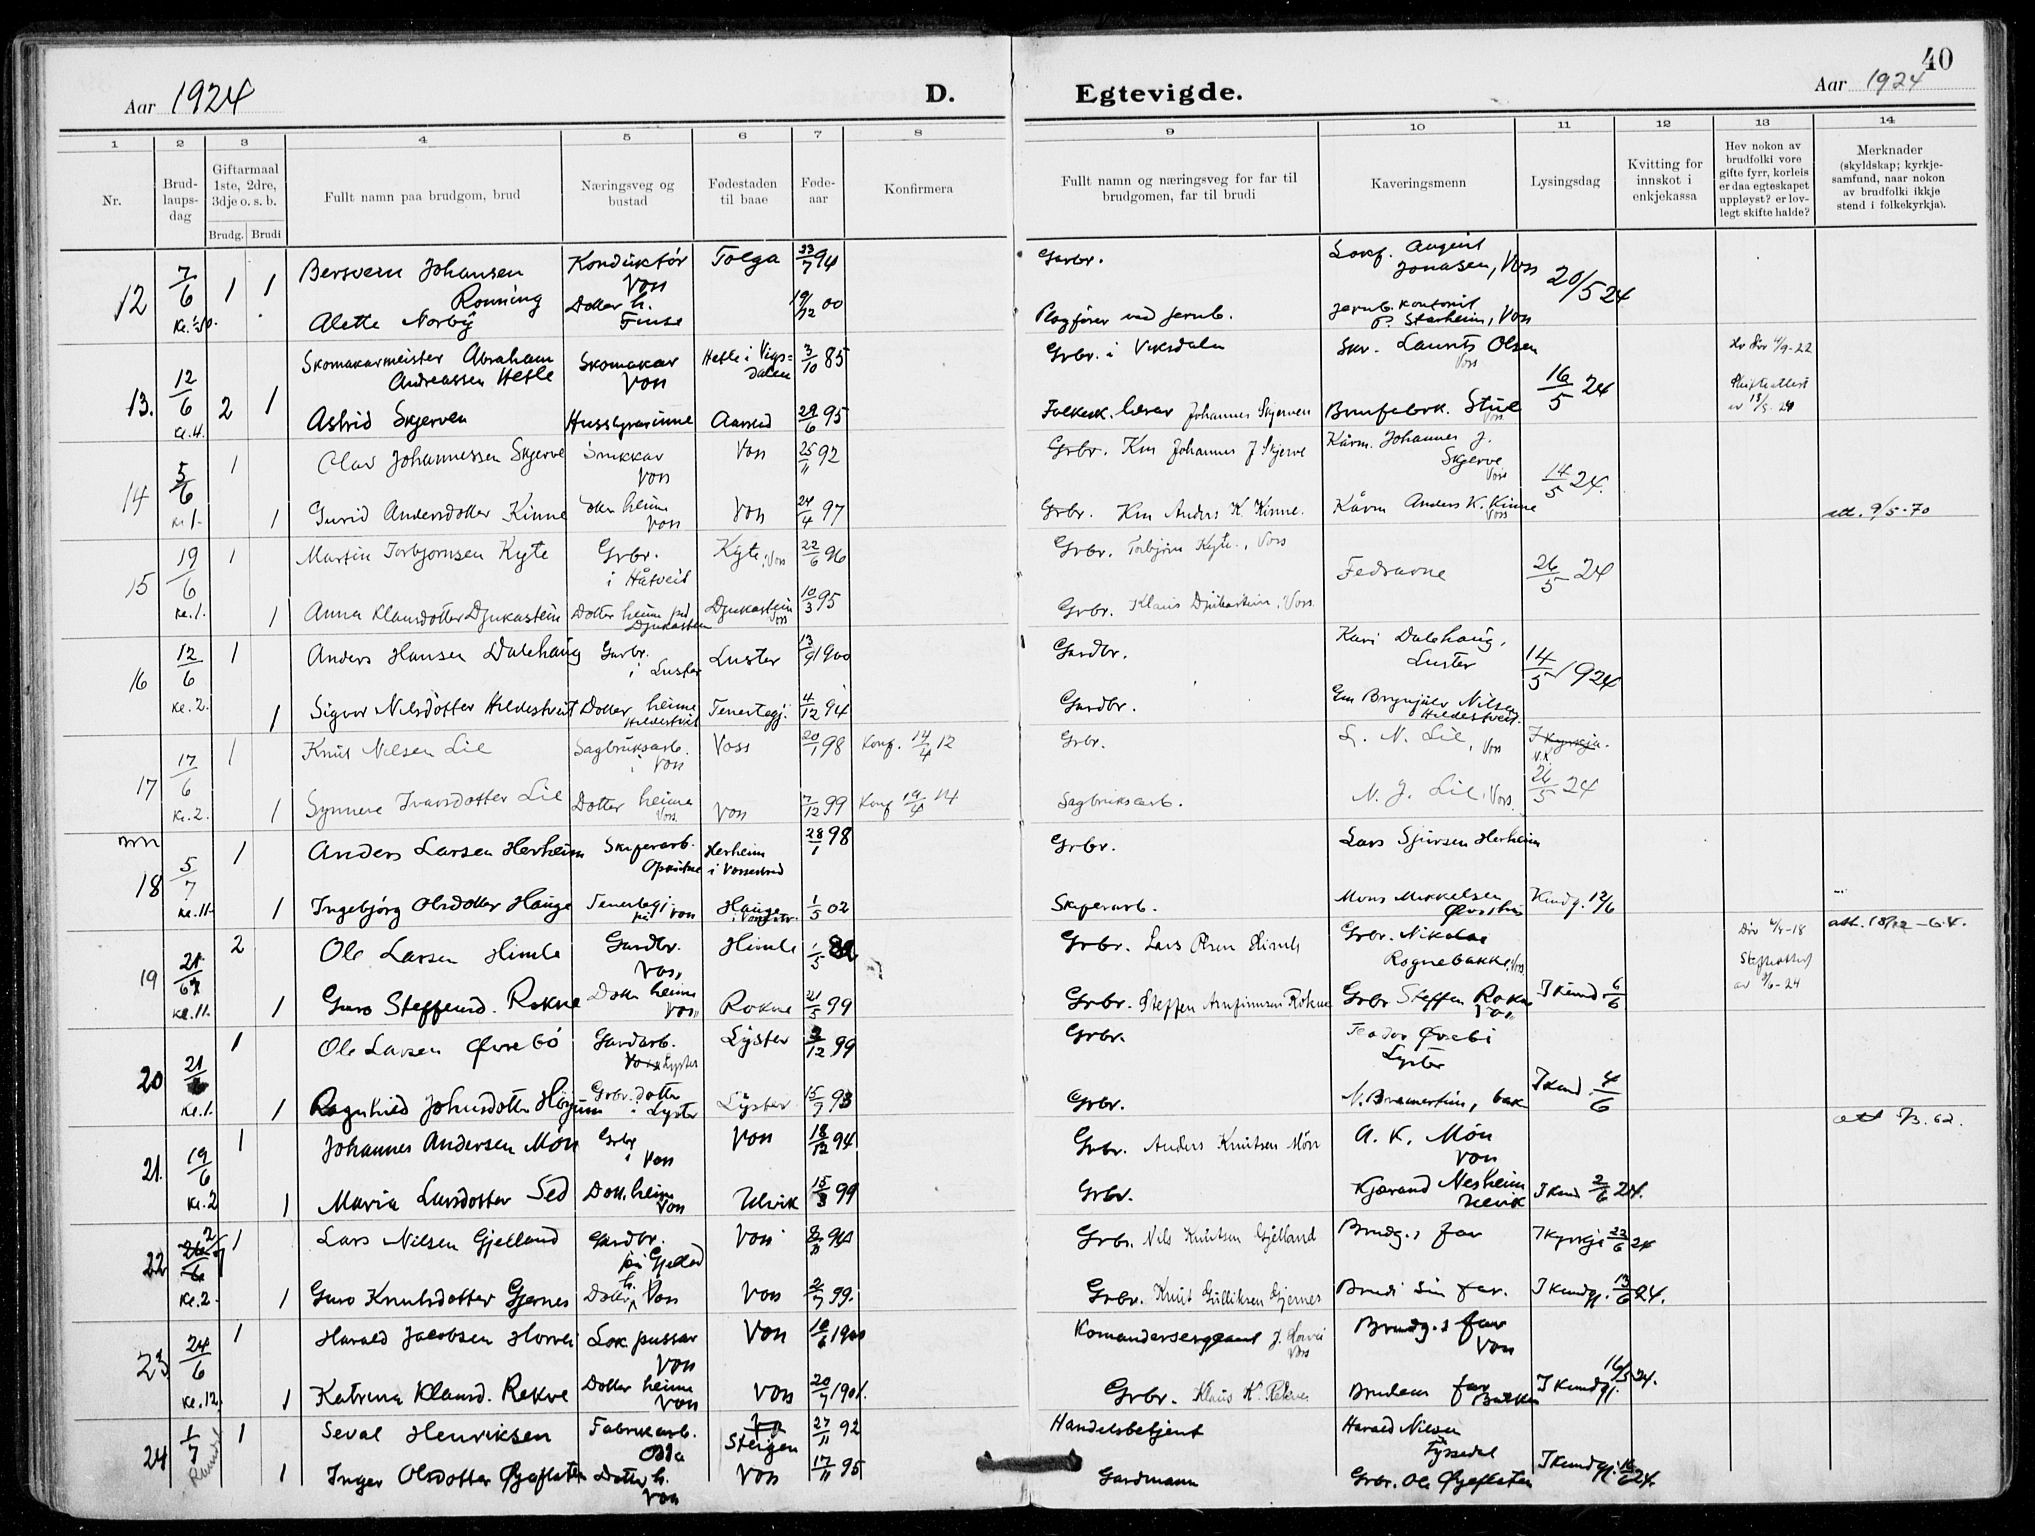 40
Aar 1924
D.
Egtevigde.
Aar 1924
1 2 3 4 5 6 7 8 9 10 11 12 13 14
Nr.
Brudlaups-dag
Giftarmaal 1ste, 2dre, 3dje o. s. b.
Brudg. Brudi
Fullt namn paa brudgom, brud
Næringsveg og bustad
Fødestaden til baae
Føde-aar
Konfirmera
Fullt namn og næringsveg for far til brudgomen, far til brudi
Kaveringsmenn
Lysingsdag
Kvitting for innskot i enkjekassa
Hev nokon av brudfolki vore gifte fyrr, korleis er daa egteskapet uppløyst? er lovlegt skifte halde?
Merknader (skyldskap; kyrkjesamfund, naar nokon av brudfolki ikkje stend i folkekyrkja).
12 7/6 1 1 Bersvein Johansen Ronning Konduktør Voss Tolga 23/7 94 Garbr. Jonasen, Voss 20/5 24
Alette Norby Dotter h. Finse 19/12 00 Jernb. kontorist P. Starheim, Voss
13. 12/6 2 1 Skomakarmeister Abraham Andreassen Hetle Skomakar Voss Hetle i Vigsdalen 3/10 85 Grbr. i Viksdalen Skr. Laurits Olsen Voss 16/5 24
Kl. 4. Astrid Skjerven Husstyrarinne Aamod 29/6 95 Folkesk. lærar Johannes Skjerven Stue Voss
14 5/6 1 Olav Johannessen Skjerve Snikkar Voss Voss 25/11 92 Grbr. Km Johannes J Skjerve Kårm. Johannes J. Skjerve Voss 14/5 24.
Kl. 1. 1 Gurid Andersdotter Kinne Dotter heime Voss Voss 24/4 97 Grbr. Km Anders K. Kinne. Kårm Anders K. Kinne Voss att. 9/5-70
15 19/6 1 Martin Torbjornsen Kyte Grbr. i Håtveit Kyte, Voss 22/6 96 Grbr. Torbjörn Kyte, Voss Fedrarne 26/5 24
Kl. 1. 1 Anna Klausdotter Djukastein Dotter heime på Djukastein Djukastein Voss 10/3 95 Grbr. Klaus Djukastein, Voss.
16 12/6 1 Anders Hansen Dalehaug Garbr. i Luster Luster 13/9 1900 Gardbr. Kari Dalehaug, Luster 14/5 1924
Kl. 2. 1 Sigvor Nilsdotter Hildestveit Dotter heime Hildestveit Tenestegj. 4/12 94 Gardbr. Brynjulv Nilsen Hildestveit.
17 17/6 1 Knut Nilsen Lie Sagbruksarb. i Voss Voss 20/1 98 Konf. 14/4 12 Grbr. L. N. Lie, Voss I kyrkja.
Kl. 2. 1 Synneve Ivarsdotter Lie Dotter heime Voss. Voss 7/12 99 Konf 19/4 14 Sagbruksarb. N. J. Lie, Voss. 26/5 24
18 5/7 1 Anders Larsen Herheim Skiferarb. Oppheim Herheim i Vossestrand 28/1 98 Grbr. Lars Sjursen Herheim
Kl. 11. 1 Ingebjørg Olsdotter Hauge Tenestegj. på Voss Hauge 1/5 02 Skiferarb. Mons Mikkelsen Kundg. 12/6
19 21/6 2 Ole Larsen Himle Gardbr. Voss, Himle 1/5 Grbr. Lars Olsen Himle Grbr. Nikolai Rognebakke, Voss. att. 18/12-64.
Kl. 11. 1 Guro Steffensd. Rokne Dotter heime Voss, Rokne 21/5 99 Grbr. Steffen Arnfinnsen Rokne Grbr Steffen Rokne Voss I kund. 6/6
20 21/6 1 Ole Larsen Øvrebö Gardarb. Voss Lyster Lyster 2/12 99 Grbr. Teodor Øvrebö Lyster
Kl. 1. 1 Ragnhild Johnsdotter Høyum Grbr. dotter i Lyster Lyster 15/9 93 Grbr. I kund. 4/6
21. 19/6 1 Johannes Andersen Mön Grbr i Voss Voss 18/12 94 Grbr. Anders Knutsen Mön A. K. Mön Voss att 5/3.62.
Kl. 2 1 Maria Larsdotter Sed Dott. heime Voss Ulvik 15/3 99 Grbr. Kjærand Nesheim Ulvik I kund 2/6 24.
22 1 Lars Nilsen Gjelland Gardbr. på Gjelland Voss Grbr. Nils Knutsen Gjelland Brudg.s far I kyrkje 22/6 24
Kl. 2. 1 Guro Knutsdotter Gjernes Dotter h. Voss Voss 2/7 99. Grbr. Knut Gulliksen Gjernes Brudi sin far. I kundgj. 13/6 24.
23 24/6 1 Harald Jacobsen Horvei Lok. pussar Voss Voss 10/6 1900 Komandersergeant J. Horvei Voss Brudg.s far Voss
Kl. 12. 1 Katrina Klausd. Rekve Dotter heime Voss Voss 20/7 1901. Grbr. Klaus K. Rekve Brudens far I kundgj. 16/5 24.
24 1/7 1 Seval Henriksen Fabrikarb. Odda Steigen 27/11 92 Handelsbetjent Harald Nilsen Tyssedal
1 Inger Olsdotter Øyeflaten Dotter h. Voss Voss 17/11 95 Gardmann Grbr. Ole Øyeflaten I kundgj. 16/6 24.